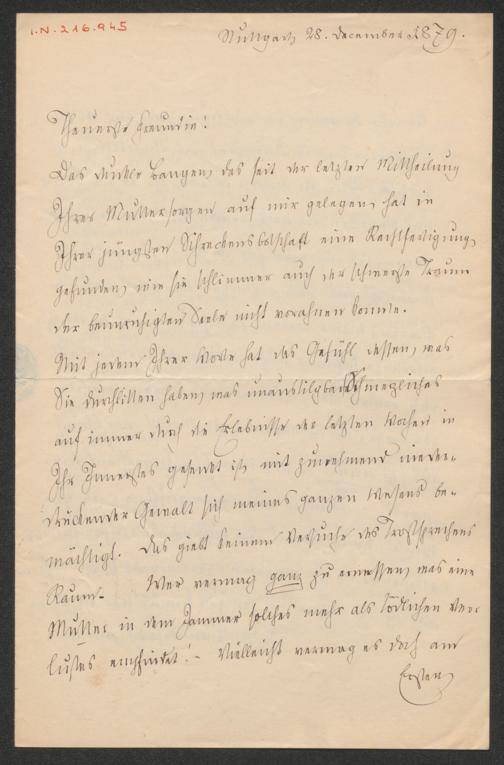 I.N. 216.945
Stuttgart 28. December 1879.
Theuerste Freundin!
Das dunkle Bangen, das seit der letzten Mittheilung
Ihrer Muttersorgen auf mir gelegen, hat in
Ihrer jüngsten Schreckensbotschaft eine Rechtfertigung
gefunden, wie sie schlimmer auch der schwerste Traum
der beunruhigten Seele nicht vorahnen konnte.
Mit jedem Ihrer Worte hat das Gefühl dessen, was
Sie durchlitten haben, was unaustilgbar Schmerzliches
auf immer durch die Erlebnisse der letzten Wochen in
Ihr Innerstes gesenkt ist, mit zunehmend nieder-
drückender Gewalt sich meines ganzen Wesens be-
mächtigt. Das giebt keinem Versuche des Trostsprechens
Raum. Wer vermag ganz zu ermessen, was eine
Mutter in dem Jammer solches mehr als tödlichen Ver-
lustes empfindet! - Vielleicht vermag es doch am
Ersten,